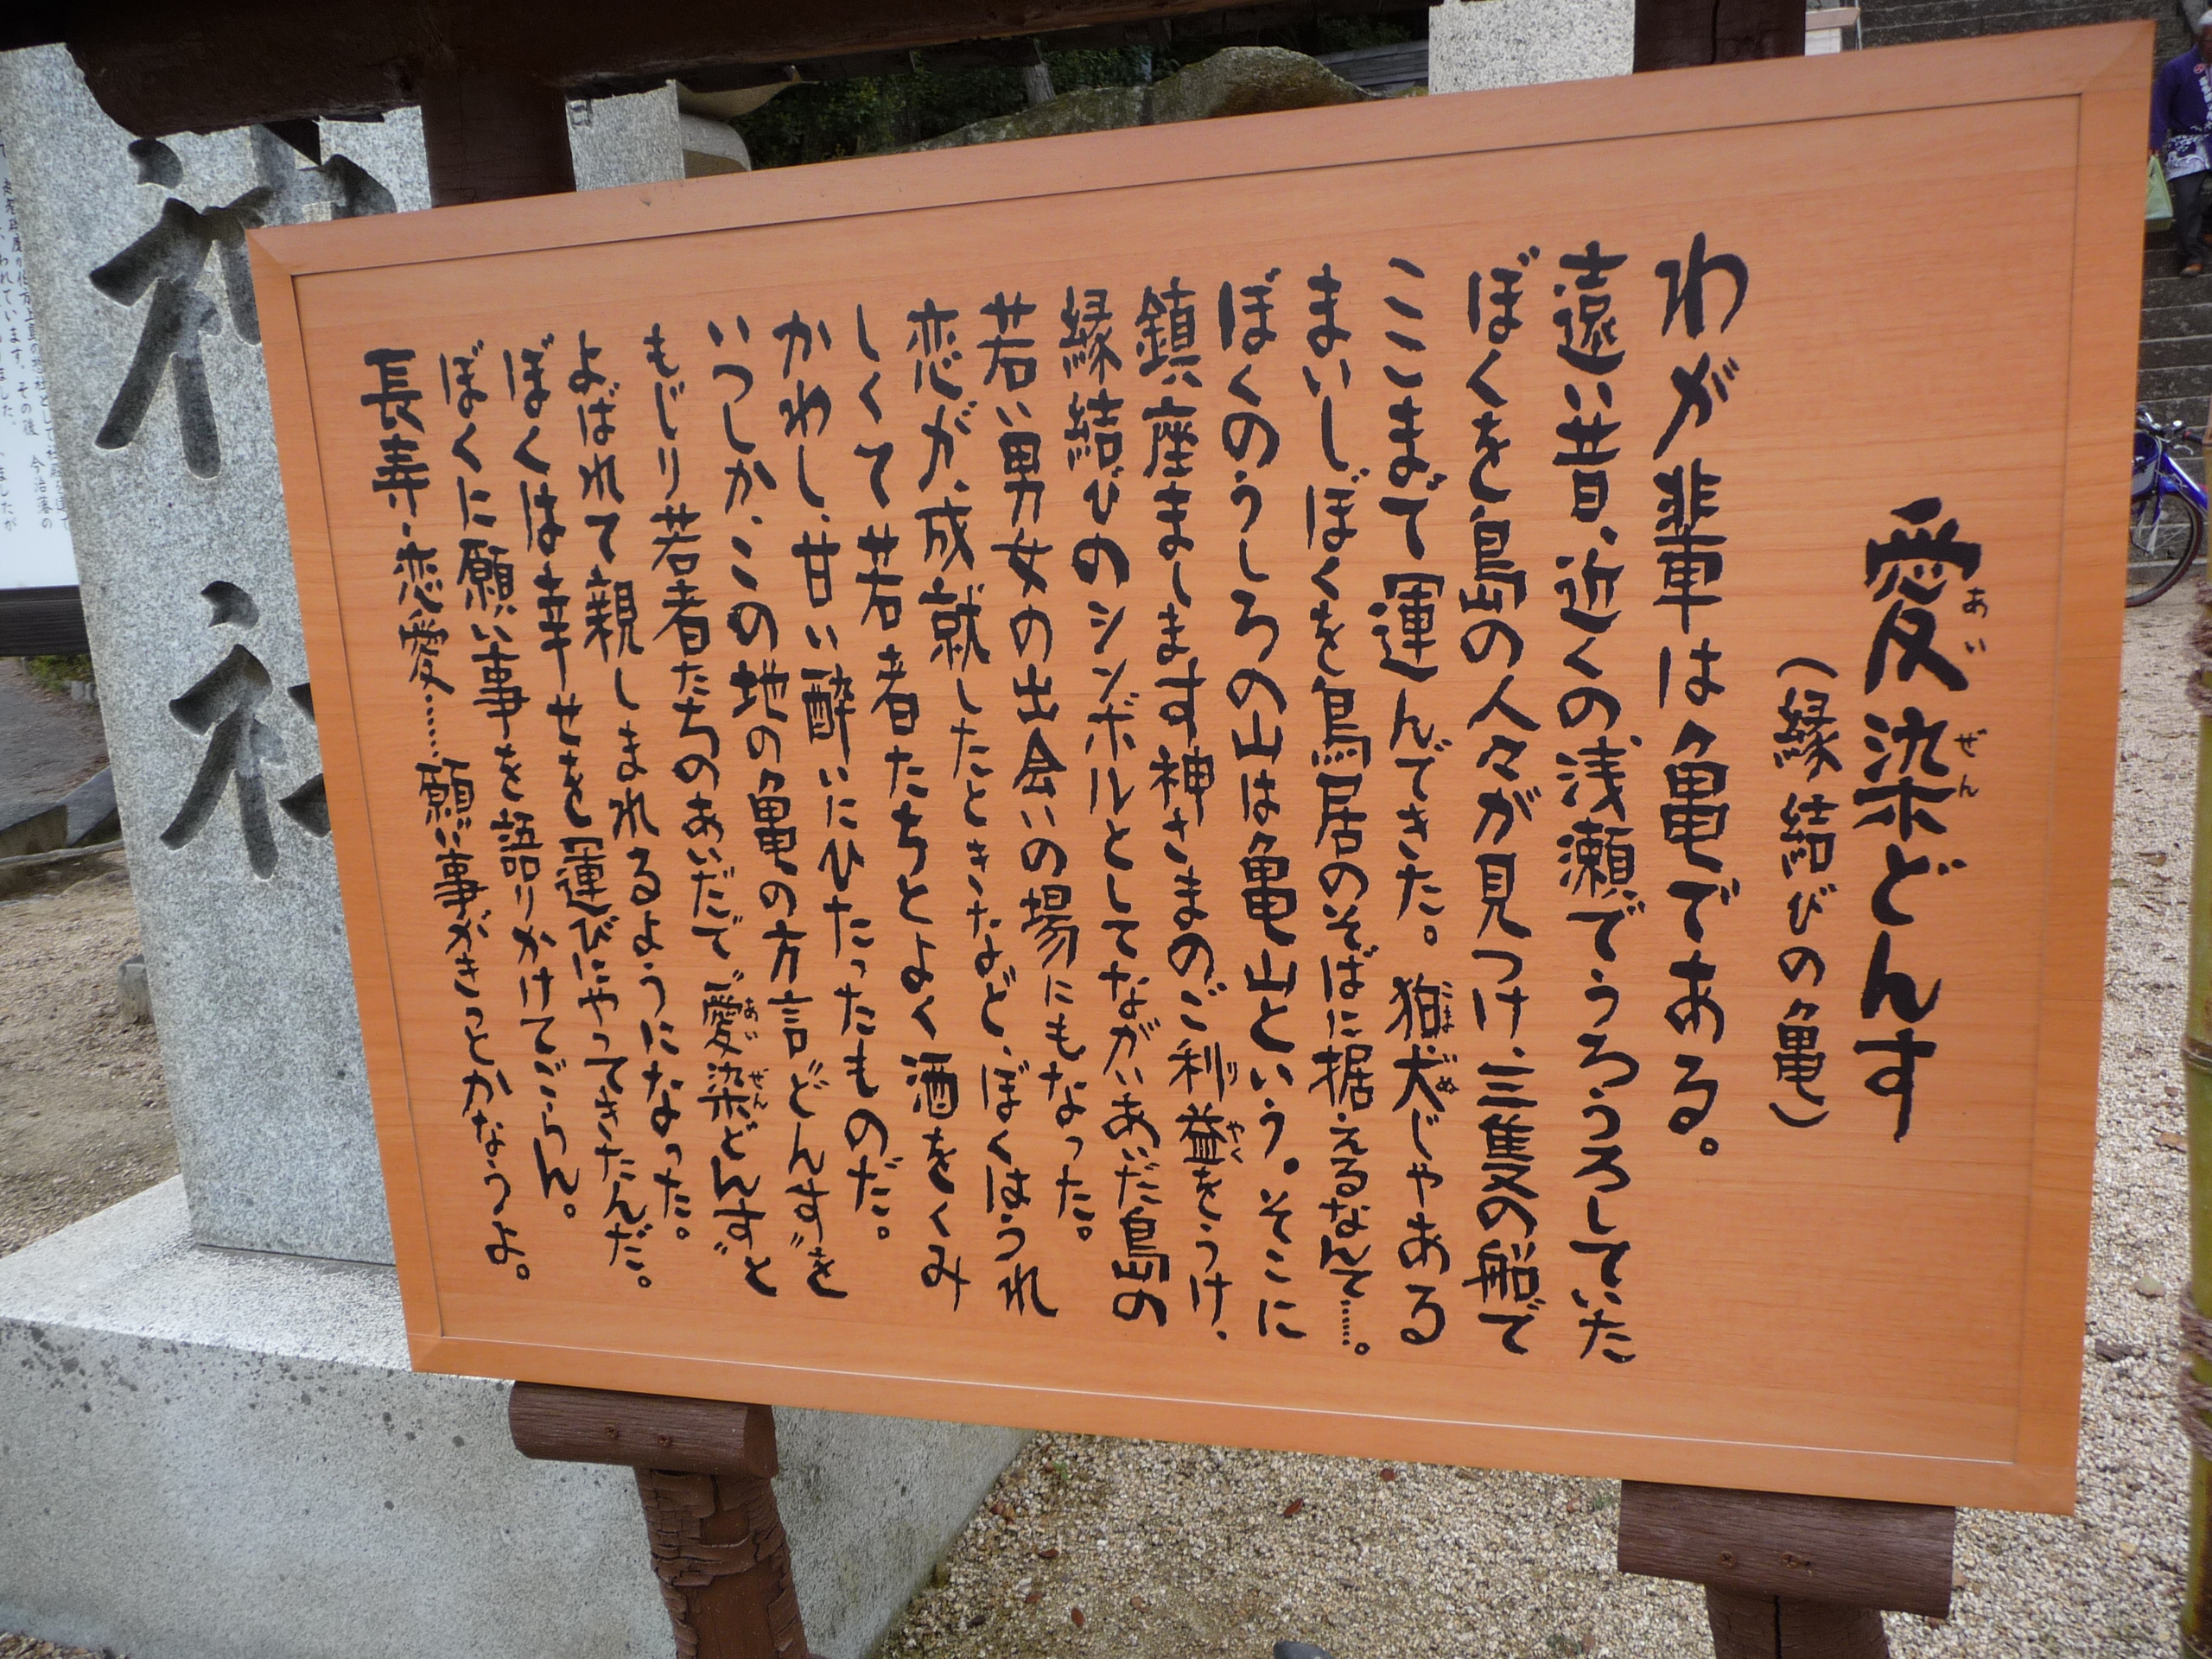 愛染どんす
あいぜん
（縁結びの亀）
わが輩は亀である。
遠い昔、近くの浅瀬でうろうろしていた
ぼくを島の人々が見つけ、三隻の船で
ここまで運んできた。狛犬じゃある
こまいぬ
まいしぼくを鳥居のそばに据えるなんて……。
ぼくのうしろの山は亀山という。そこに
鎮座まします神さまのご利益をうけ、
りやく
縁結びのシンボルとしてながいあいだ島の
若い男女の出会いの場にもなった。
恋が、成就したときなど、ぼくはうれ
しくて若者たちとよく酒をくみ
かわし、甘い酔いにひたったものだ。
いつしか、この地の亀の方言〝どんす〟を
もじり若者たちのあいだで〝愛染どんす〟と
あいぜん
よばれて親しまれるようになった。
ぼくは幸せを運びにやってきたんだ。
ぼくに願い事を語りかけてごらん。
長寿・恋愛……願い事がきっとかなうよ。
神社